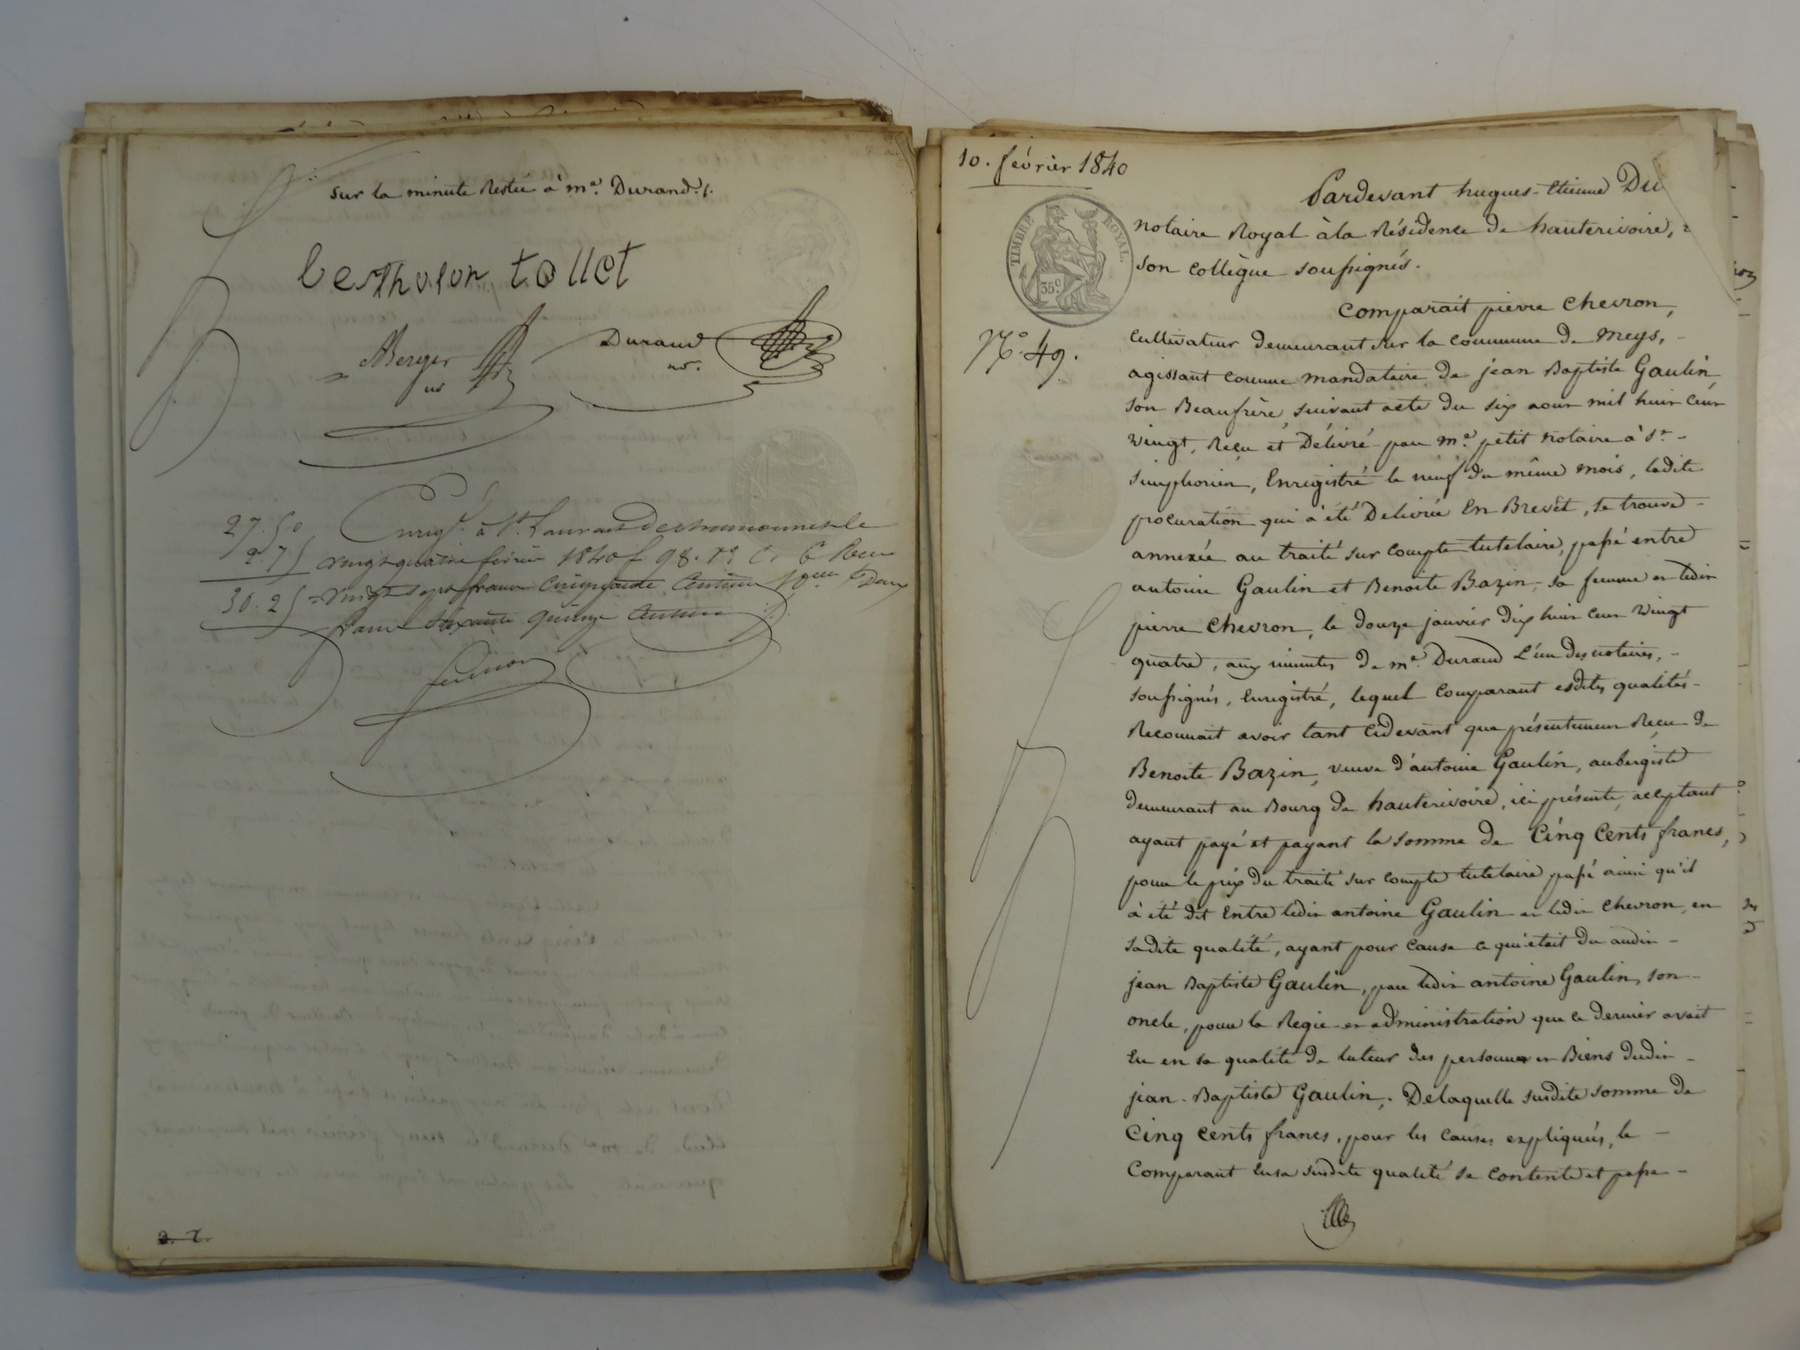 sur la minute restée à me. Durand./.
berthelon tollet
Berger
nre
Durand
nre.
27.50
2.75
30.25
Enregt. à St. Laurent de chamousset le
vingt quatre février 1840 f 98. Ro. C. 6 Reçu
vingt sept francs cinquante centimes 10eme Deux
francs soixante quinze centimes
10. février 1840
TIMBRE ROYAL.
35c
No. 49.
Pardevant hugues-Etienne Du
notaire Royal à la Résidence de hauterivoire,
son collègue soussignés.
Comparait pierre Chevron,
Cultivateur demeurant sur la commune de Meys, -
agissant comme mandataire de jean Baptiste Gaulin
son Beaufrère, suivant acte du six aout mil huit cent
vingt, Reçu et Délivré par me. petit notaire à St -
simphorien, Enregistré le neuf du même mois, ladite
procuration qui a été Delivrée En Brevet, se trouve -
annexée au traité sur compte tutelaire, passé entre
antoine Gaulin et Benoite Bazin, sa femme et ledit
pierre Chevron, le douze janvier dix huit cent vingt
quatre, aux minutes de me. Durand L'un des notaires, -
soussignés, Enregistré, lequel Comparant esdites qualités -
Reconnait avoir tant cidevant que présentement Reçu de
Benoite Bazin, veuve d'antoine Gaulin, aubergiste
demeurant au Bourg de hauterivoire, ici présente acceptant
ayant payé et payant la somme de Cinq Cents francs,
pour le prix du traité sur compte tutelaire passé ainsi qu'il
à été dit Entre ledit antoine Gaulin et ledit Chevron, en
sadite qualité, ayant pour cause ce qui était du audit -
jean Baptiste Gaulin, par ledit antoine Gaulin, son -
oncle, pour la Regie et administration que ce dernier avait
Eu en sa qualité de tuteur des personne et Biens dudit -
jean-Baptiste Gaulin. Delaquelle susdite somme de
Cinq Cents francs, pour les causes expliquées, le -
Comparant En sa susdite qualité se contente et passe -